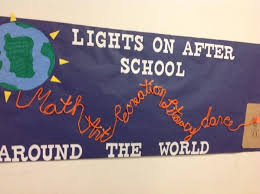 LIGHTS ON AFTER
SCHOOL
Math Art Recreation Literacy dance
AROUND THE WORLD